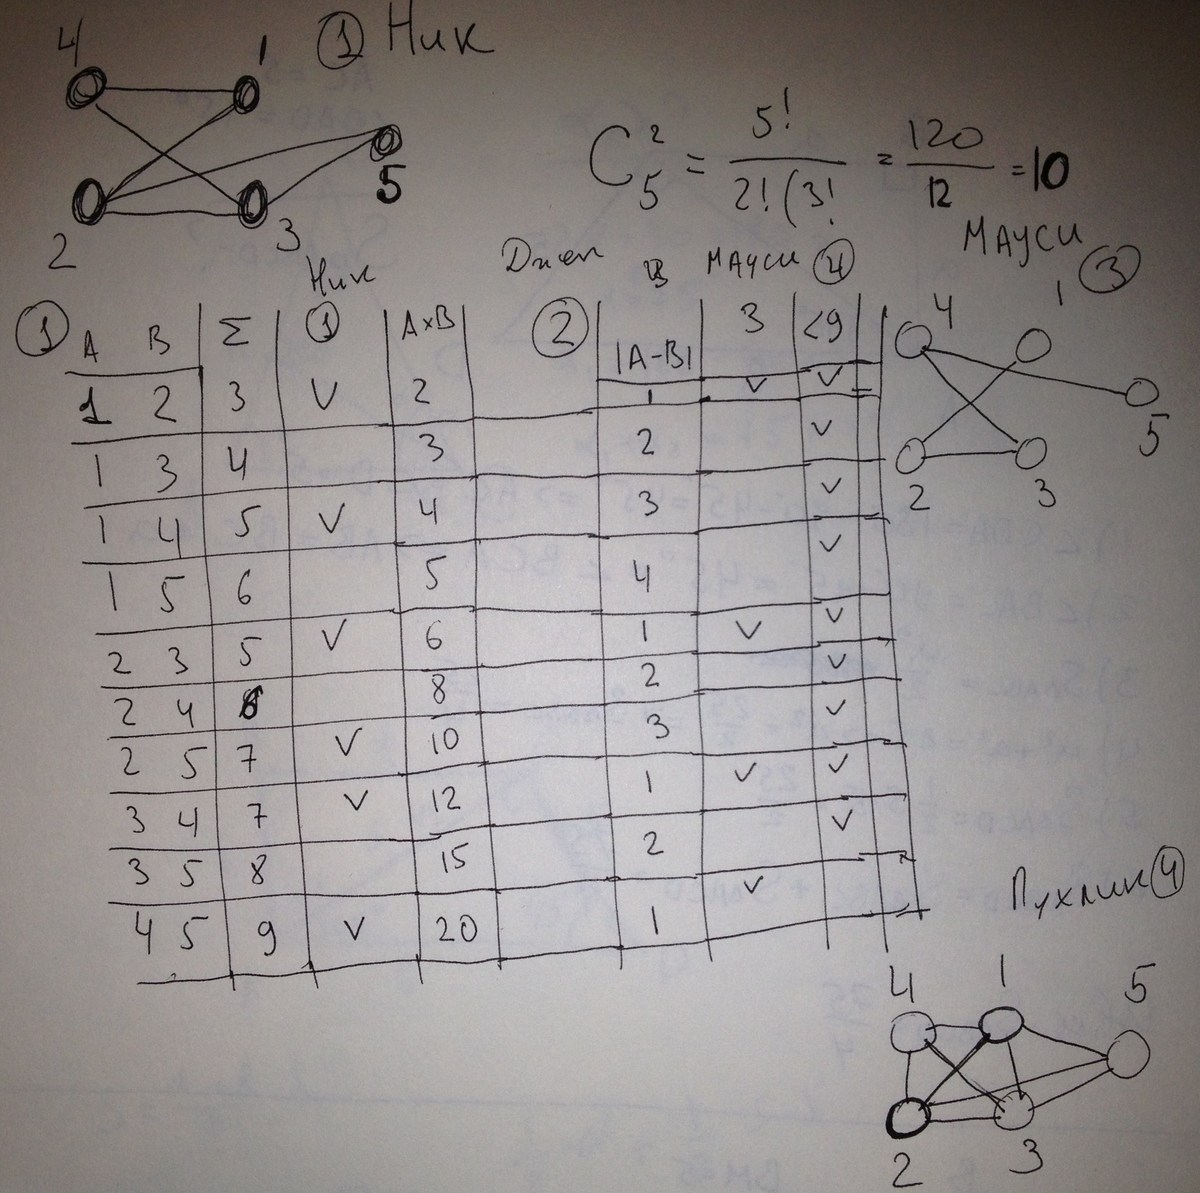 4 1 ① Ник
C₅² = 5! / 2!(3! = 120 / 12 = 10
5
2 3
Ник Джен В МАУСИ ④ МАУСИ ③
① A B Σ ① A×B ② |A-B| 3 <9
1 2 3 V 2 1 V V
1 3 4 3 2 V
1 4 5 V 4 3 V
1 5 6 5 4 V
2 3 5 V 6 1 V V
2 4 6 8 2 V
2 5 7 V 10 3 V
3 4 7 V 12 1 V V
3 5 8 15 2 V
4 5 9 V 20 1 V
4 1
5
2 3
Пухлик ④
4 1 5
2 3